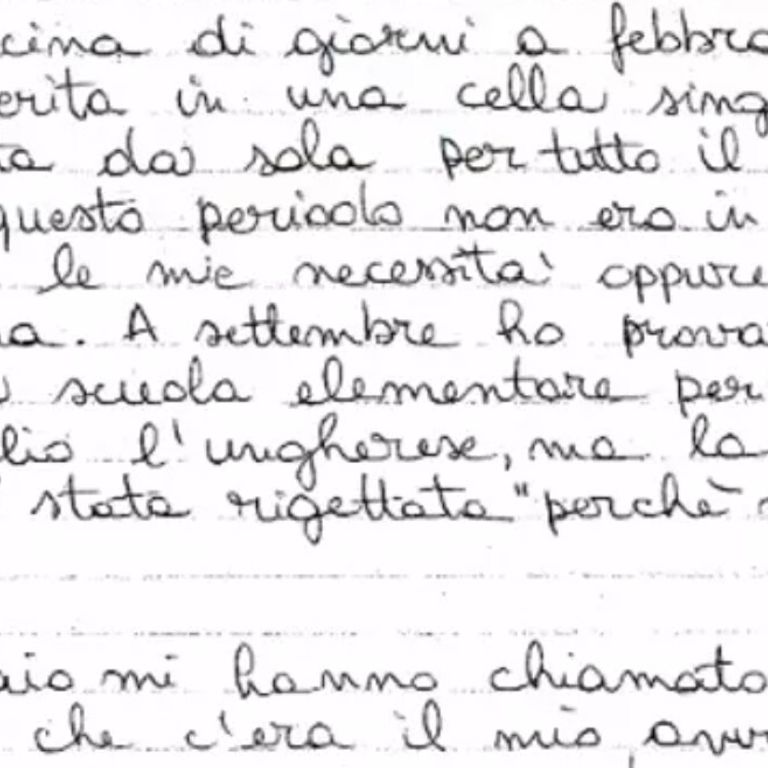 cina di giorni a febbra
erita in una cella sing
ta da sola per tutto il
questo periodo non ero in
le mie necessita' oppure
na. A settembre ho prova
scuola elementare per
lio l'ungherese, ma la
stata rigettata "perchè
aio mi hanno chiamato
che c'era il mio avv